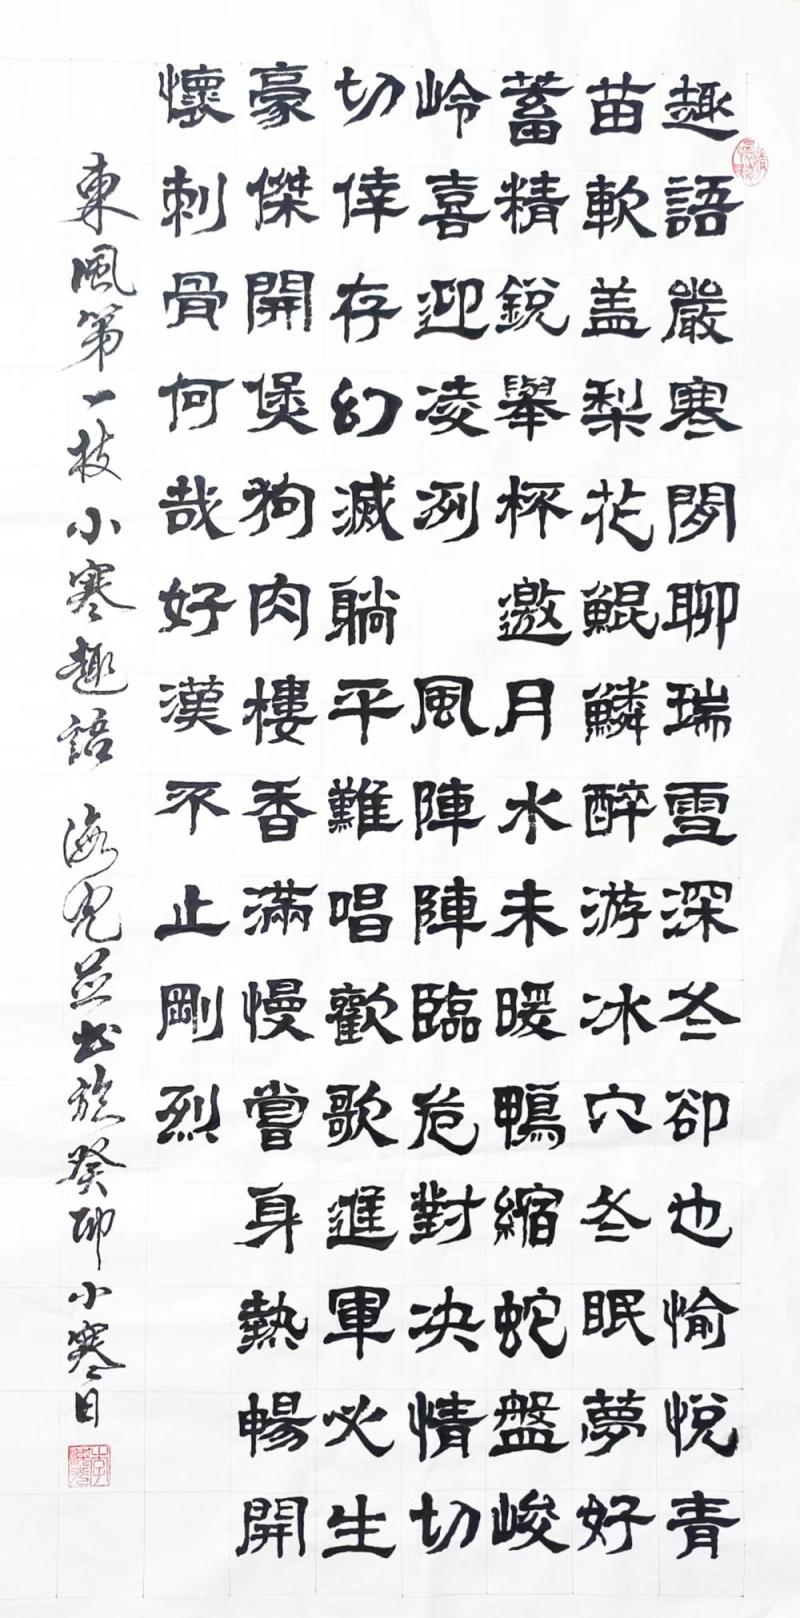 趣語嚴寒閑聊瑞雪深冬卻也愉悅青
苗軟盖梨花鯤鱗醉游冰穴冬眠夢好
蓄精銳舉杯邀月水未暖鴨縮蛇盤峻
岭喜迎凌冽 風陣陣臨危對决情切
切倖存幻滅躺平難唱歡歌進軍必生
豪傑開煲狗肉樓香滿慢嘗身熱暢開
懷刺骨何哉好漢不止剛烈
東風第一枝小寒趣語 海兒並书於癸卯小寒日